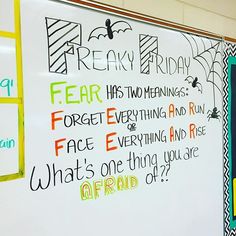 FREAKY FRIDAY
F.EAR HAS TWO MEANINGS:
FORGET EVERYTHING AND RUN
OR
FACE EVERYTHING AND RISE
What's one thing you are
AFRAID of??